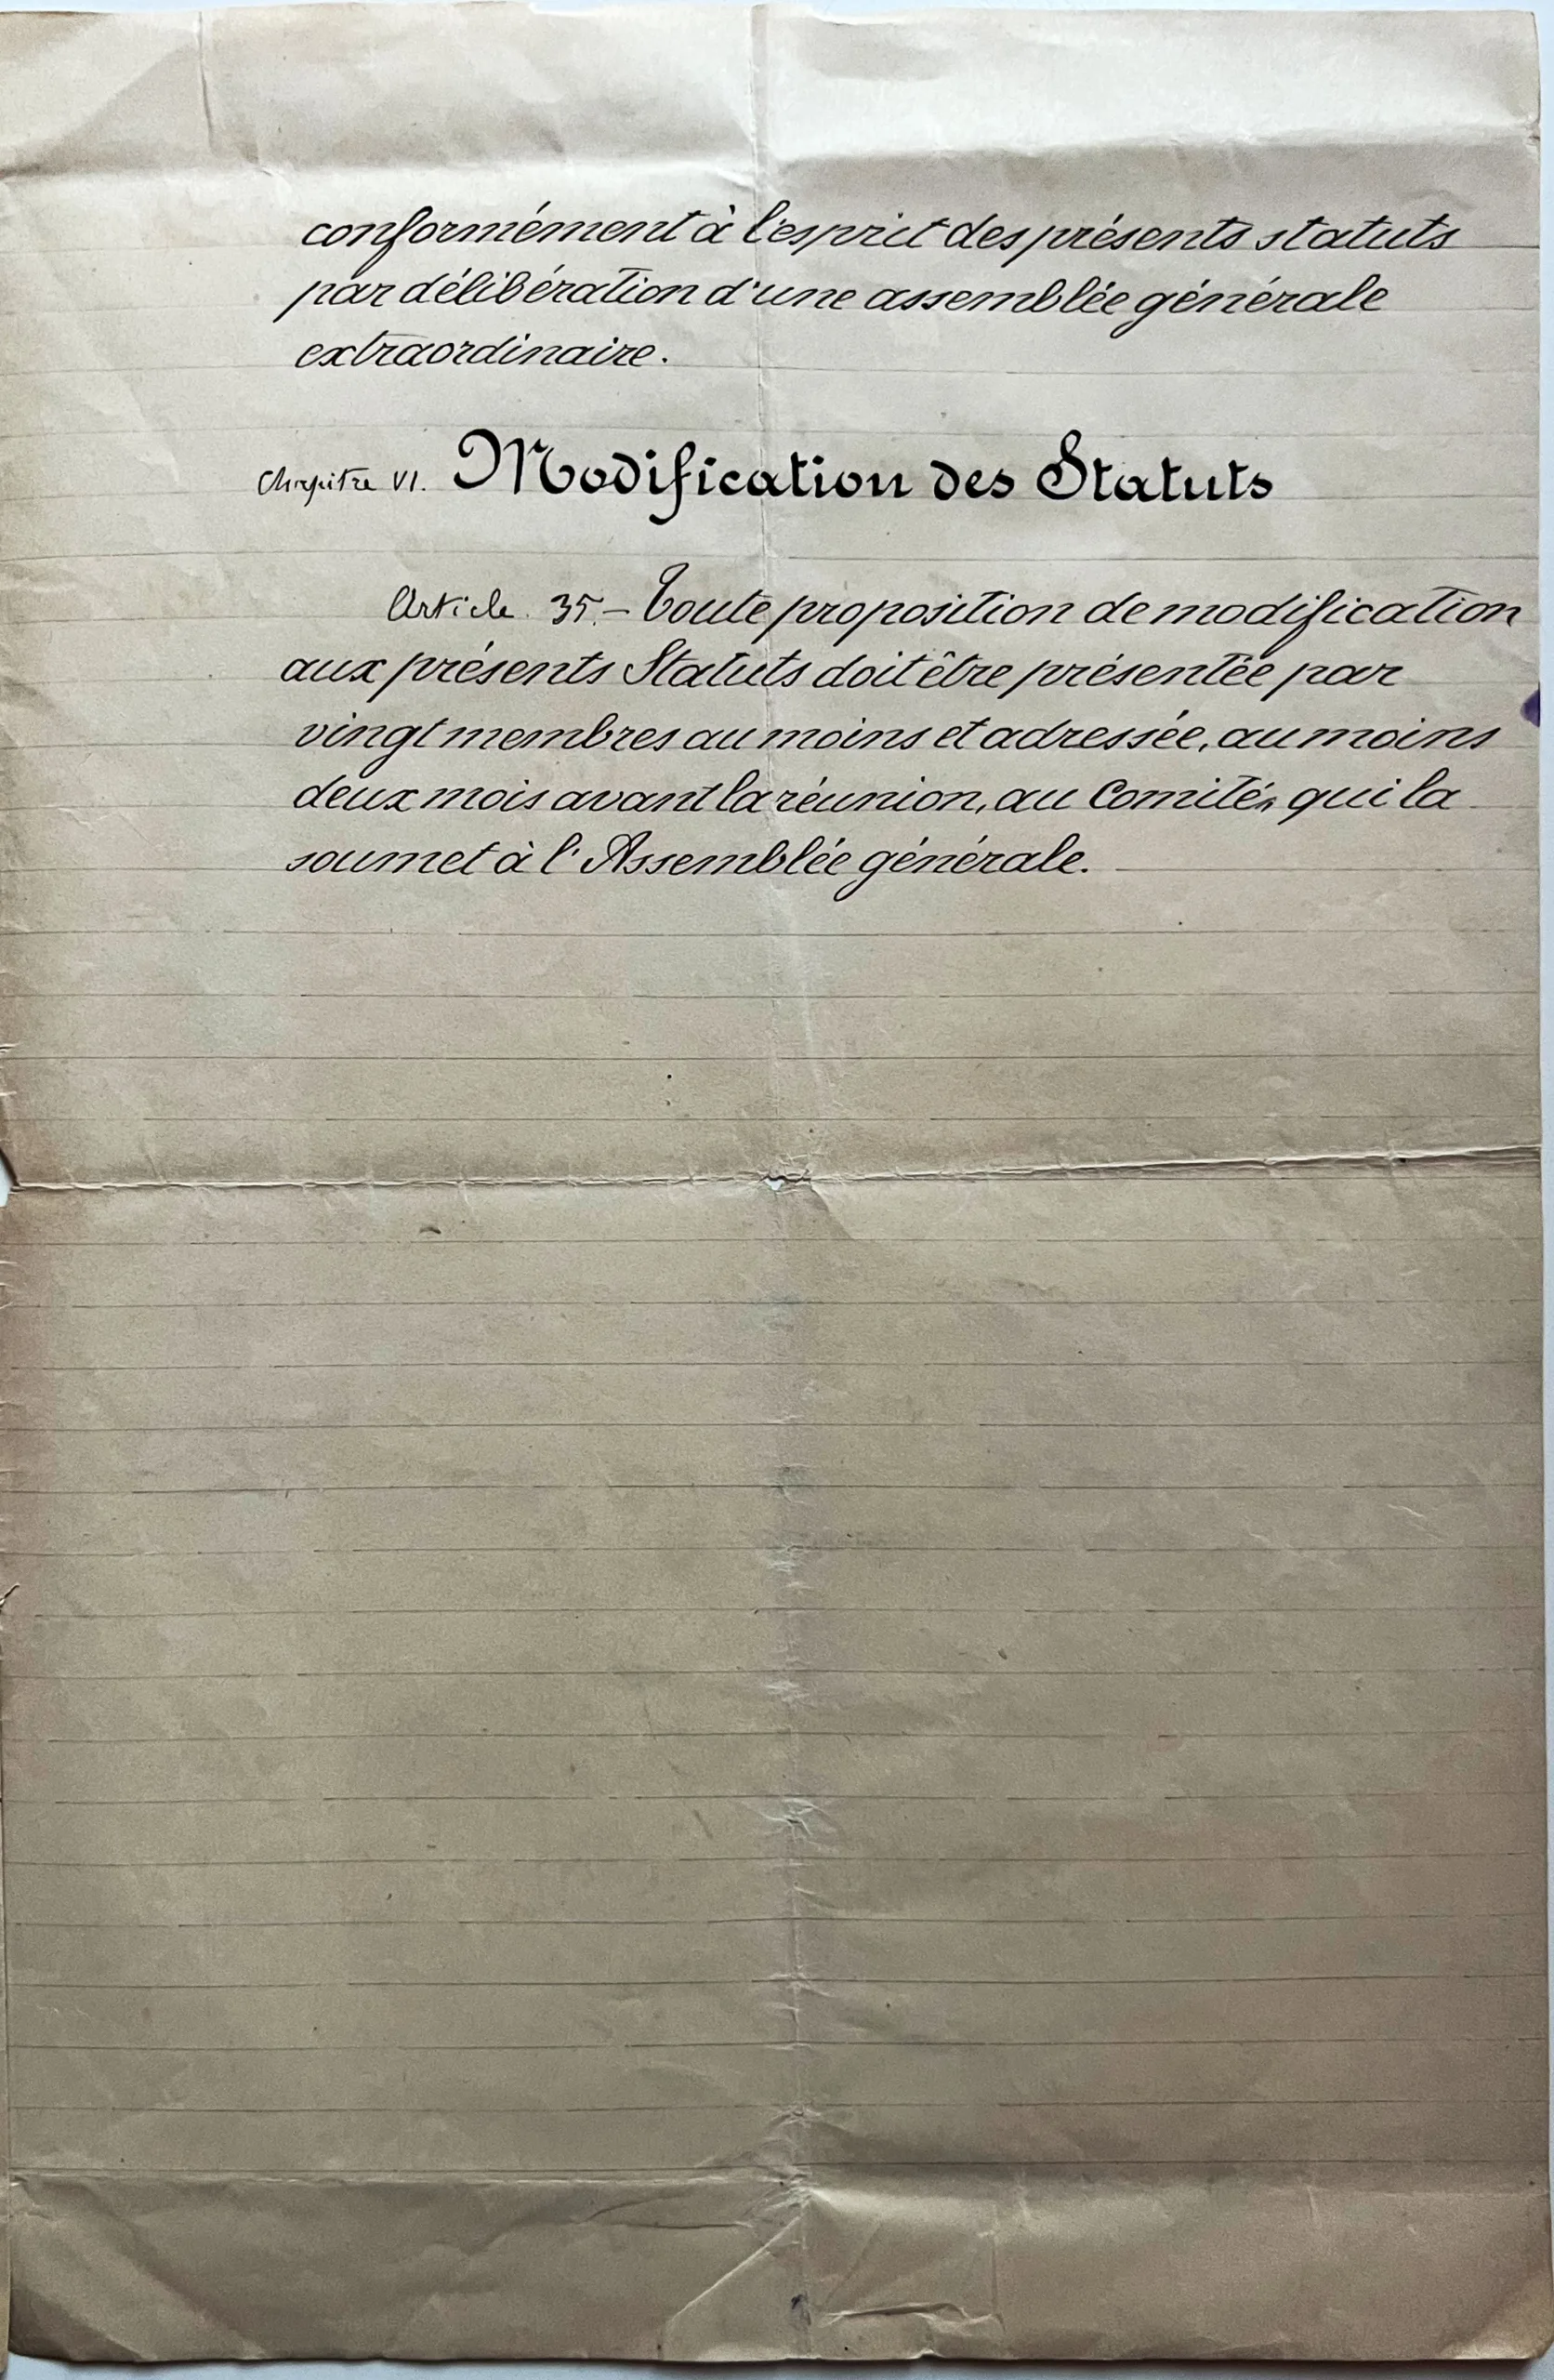 conformément à l'esprit des présents statuts
par délibération d'une assemblée générale
extraordinaire.
Chapitre VI. Modification des Statuts
Article 35.— Toute proposition de modification
aux présents Statuts doit être présentée par
vingt membres au moins et adressée, au moins
deux mois avant la réunion, au Comité, qui la
soumet à l'Assemblée générale.